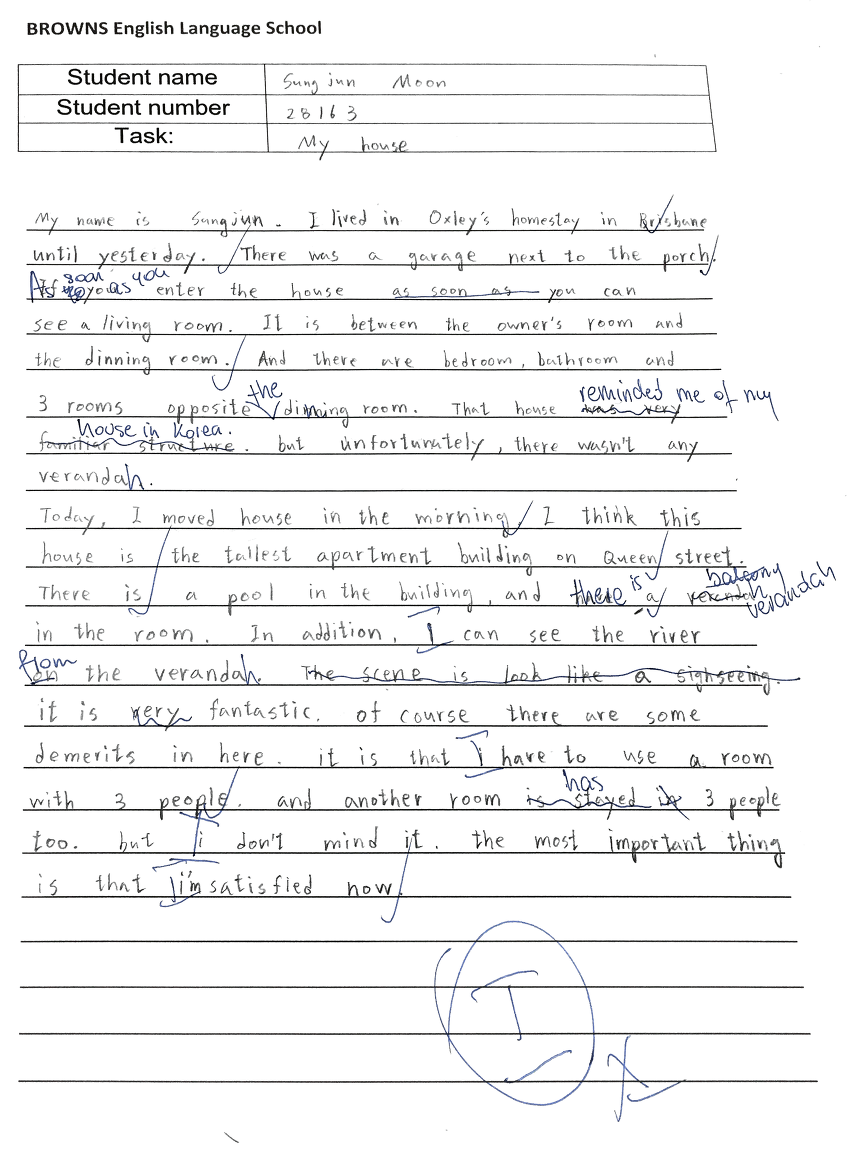 BROWNS English Language School
Student name Sungjun Moon
Student number 28163
Task: My house
My name is Sungjun. I lived in Oxley's homestay in Brisbane
until yesterday. There was a garage next to the porch.
soon you
As as enter the house as soon as you can
see a living room. It is between the owner's room and
the dinning room. And there are bedroom, bathroom and
the reminded me of my
3 rooms opposite dinning room. That house was very
house in Korea.
familiar structure. but unfortunately, there wasn't any
verandah.
Today, I moved house in the morning, I think this
house is the tallest apartment building on Queen street.
is balcony
There is a pool in the building, and there a verandah
verandah
in the room. In addition, I can see the river
from
on the verandah. The scene is look like a sighseeing
it is very fantastic. of course there are some
demerits in here. it is that i have to use a room
has
with 3 people. and another room is stayed in 3 people
too. but i don't mind it. the most important thing
is that i'm satisfied now.